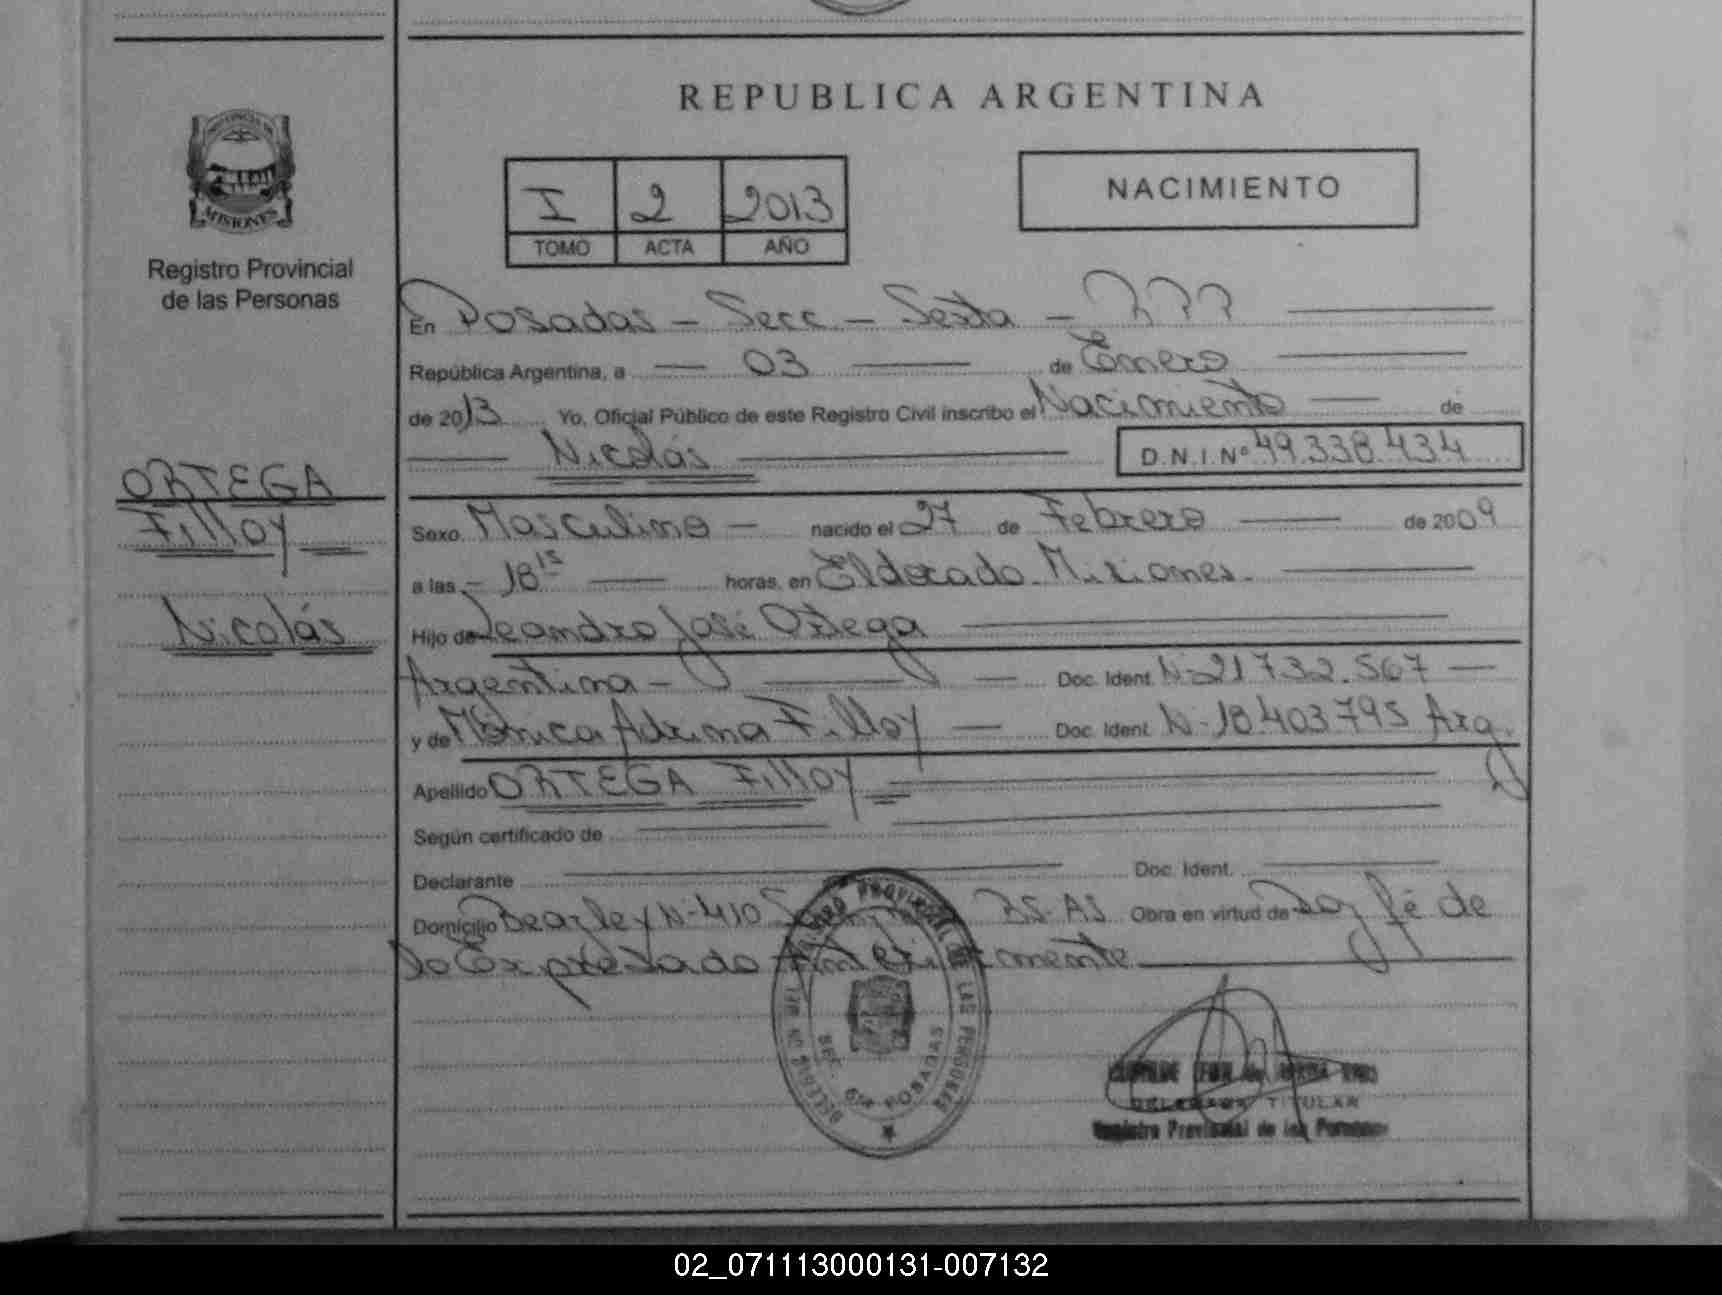 REPUBLICA ARGENTINA
PROVINCIA DE
MISIONES
Registro Provincial
de las Personas
I 2 2013
TOMO ACTA AÑO
NACIMIENTO
En Posadas - Secc - Sexta -
República Argentina, a 03 de Enero
de 2013 Yo, Oficial Público de este Registro Civil inscribo el Nacimiento de
Nicolás D.N.I.Nº 49.338.434
ORTEGA
Filloy
Nicolás
Sexo Masculino - nacido el 27 de Febrero de 2009
a las - 18 15 horas, en Eldorado. Misiones.
Hijo de Leandro José Ortega
Argentina - Doc. Ident. N- 21 732.567
y de Mónica Adriana Filloy Doc. Ident. N- 18 403 795 Arg.
Apellido ORTEGA Filloy
Según certificado de
Declarante Doc. Ident.
Domicilio Beazley N- 410 BS-AS Obra en virtud de Doy fé de
lo Expresado Anteriormente
REGISTRO PROVINCIAL DE LAS PERSONAS
POSADAS
TITULAR
Registro Provincial de las Personas
02_071113000131-007132